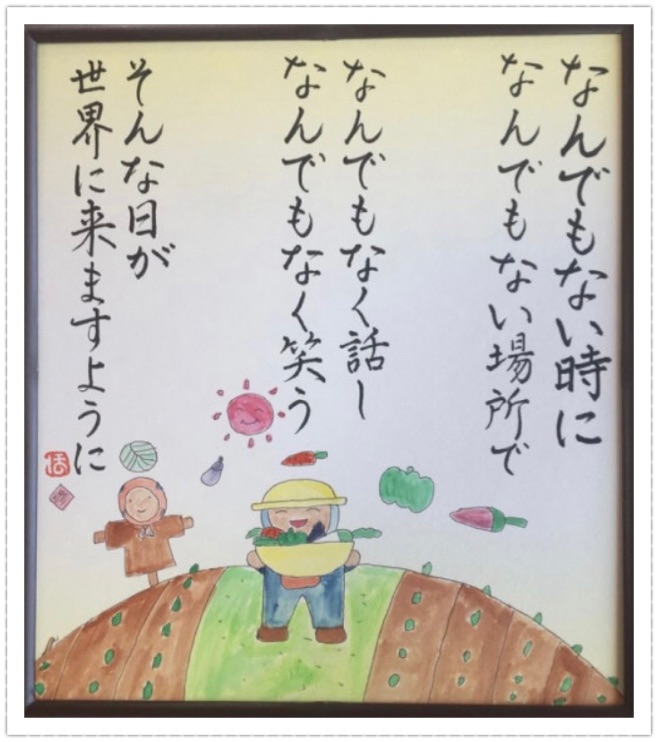 なんでもない時に
なんでもない場所で
なんでもなく話し
なんでもなく笑う
そんな日が
世界に来ますように